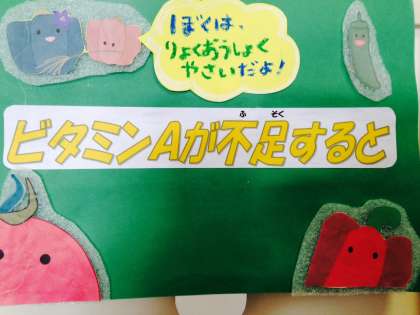 ぼくは、
りょくおうしょく
やさいだよ!
ふそく
ビタミンAが不足すると